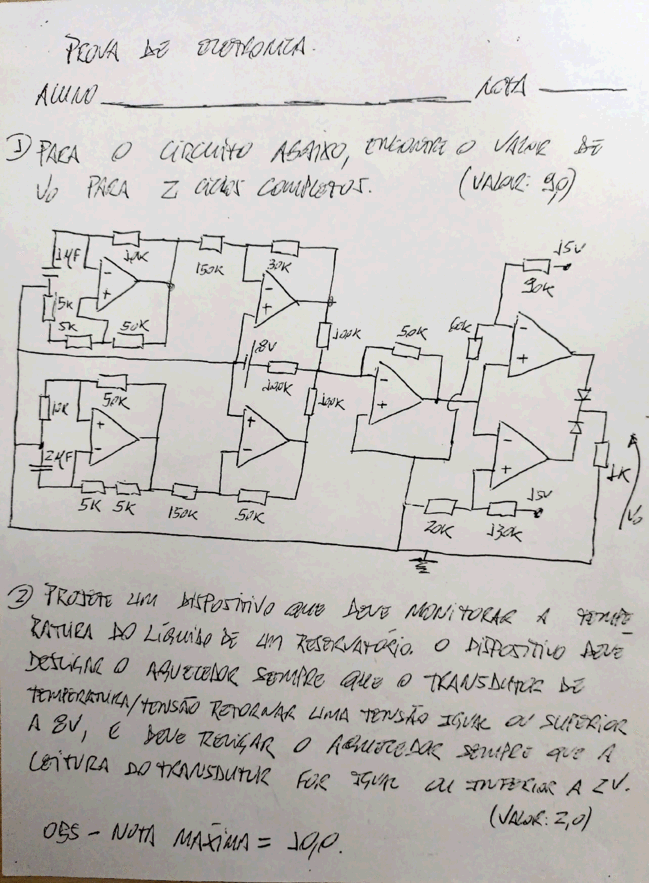 PROVA DE ELETRONICA.
ALUNO NOTA
1 PARA O CIRCUITO ABAIXO, ENCONTRE O VALOR DE
Vo PARA 2 CICLOS COMPLETOS. (VALOR: 9,0)
15V
1µF 10K 150K 30K 90K
5K
5K 50K 100K 50K 60K
8V 100K
10K 50K 100K
2µF 1K
5K 5K 150K 50K 15V Vo
20K 130K
2 PROJETE UM DISPOSITIVO QUE DEVE MONITORAR A TEMPE
RATURA DO LÍQUIDO DE UM RESERVATÓRIO. O DISPOSITIVO DEVE
DESLIGAR O AQUECEDOR SEMPRE QUE O TRANSDUTOR DE
TEMPERATURA/TENSÃO RETORNAR UMA TENSÃO IGUAL OU SUPERIOR
A 8V, E DEVE RELIGAR O AQUECEDOR SEMPRE QUE A
LEITURA DO TRANSDUTOR FOR IGUAL OU INFERIOR A 2V.
(VALOR: 2,0)
OBS - NOTA MAXÍMA = 10,0.